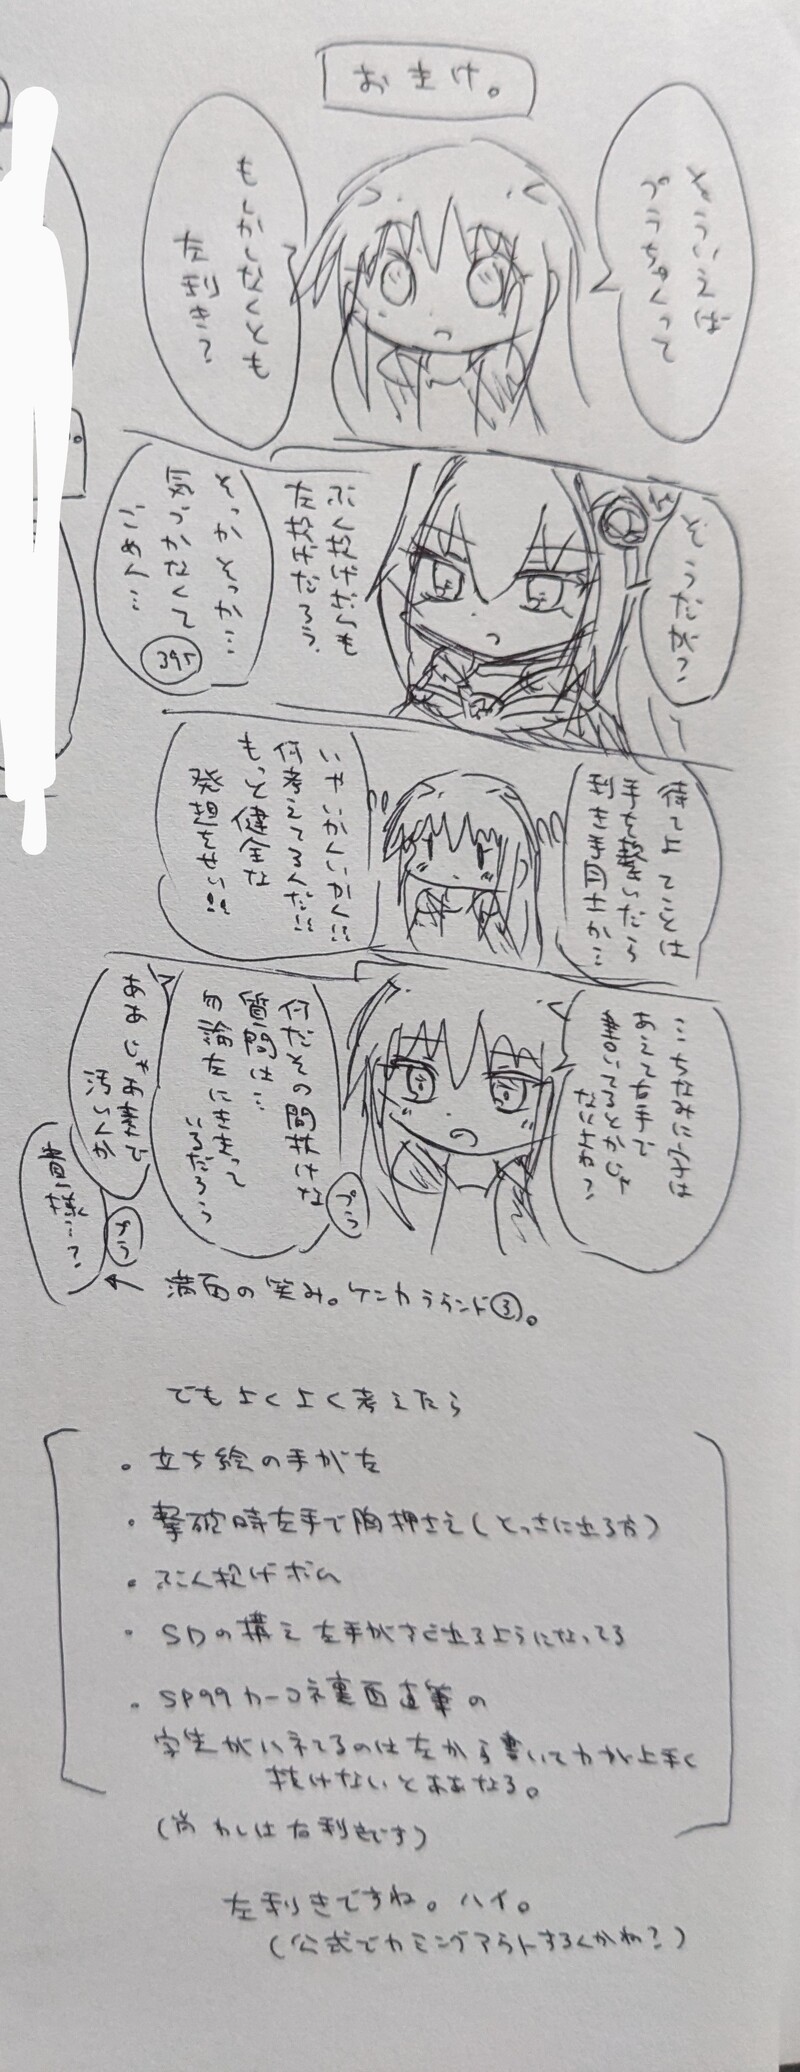 おまけ。
そういえば
プラちゃんって
もしかしなくとも
左利き？
そうだが？
ぶん投げボムも
左投げだろう。
そっかそっか…
気づかなくて
ごめん…
395
待てよ てことは
手を繋いだら
利き手同士か…
いやいかんいかん!!
何考えてるんだ!!
もっと健全な
発想をせい!!
…ちなみに字は
あえて右手で
書いてるとかじゃ
ないよね？
何だその間抜けな
質問は…
勿論左にきまって
いるだろう
プラ
ああじゃあ素で
汚いんか
貴様…？
プラ
← 満面の笑み。ケンカラウンド③。
でもよくよく考えたら
・立ち絵の手が左
・撃破時左手で胸押さえ(とっさに出る方)
・ぶん投げボム
・SDの構え 左手がさき出るようになってる
・SP99カーコネ裏面直筆の
字tが八ネてるのは左から書いて力が上手く
抜けないとああなる。
(尚わしは右利きです)
左利きですね。ハイ。
(公式でカミングアウトするんかわ？)